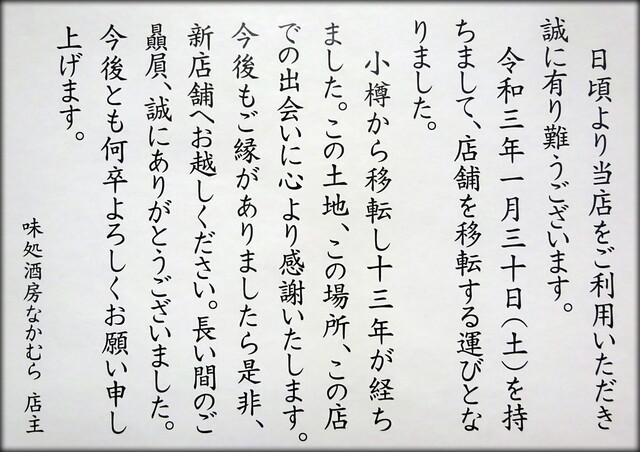 日頃より当店をご利用いただき
誠に有り難うございます。
令和三年一月三十日(土)を持
ちまして、店舗を移転する運びとな
りました。
小樽から移転し十三年が経ち
ました。この土地、この場所、この店
での出会いに心より感謝いたします。
今後もご縁がありましたら是非、
新店舗へお越しください。長い間のご
贔屓、誠にありがとうございました。
今後とも何卒よろしくお願い申し
上げます。
味処酒房なかむら 店主